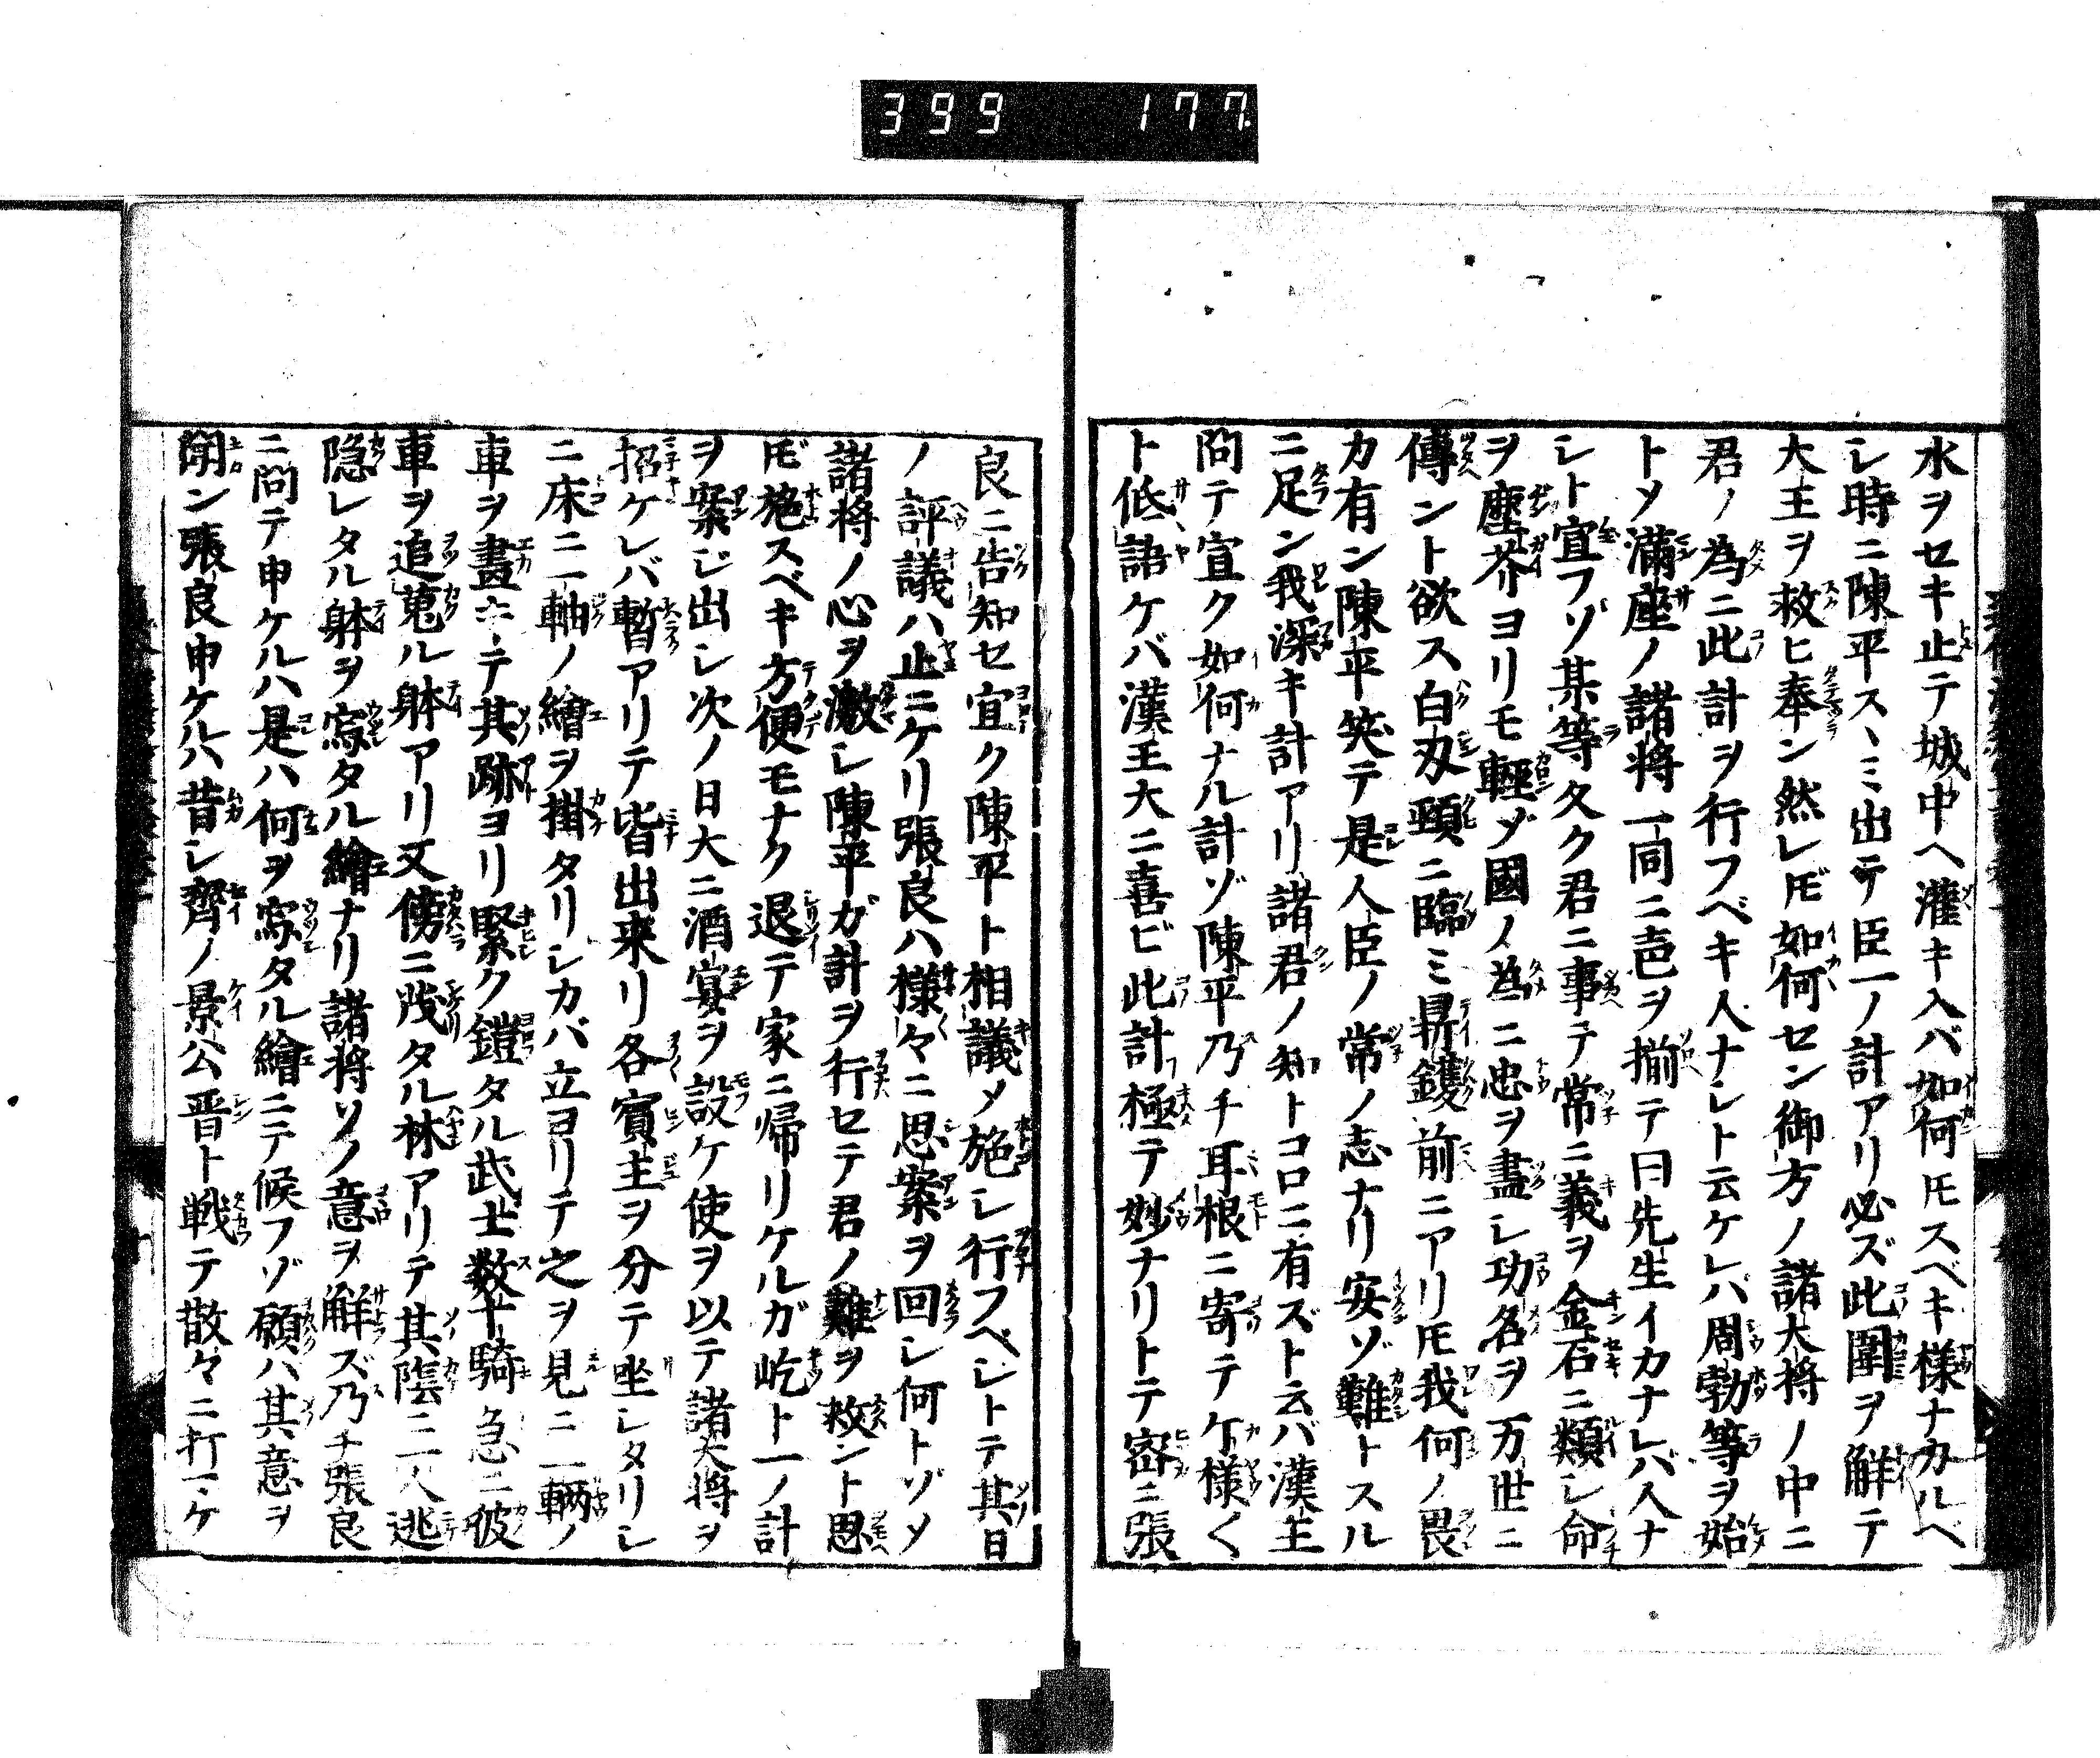 399 177
水ヲセキ止テ城中ヘ灌キ入バ如何𪜈スベキ様ナカルベ
レ時ニ陳平スヽミ出テ臣一ノ計アリ必ズ此圍ヲ觧テ
大王ヲ救ヒ奉ン然レ𪜈如何セン御方ノ諸大将ノ中ニ
君ノ為ニ此計ヲ行フベキ人ナシト云ケレバ周勃等ヲ始
トメ満座ノ諸将一同ニ色ヲ揃テ曰先生イカナレバ人ナ
シト宣フゾ某等久ク君ニ事テ常ニ義ヲ金石ニ類シ命
ヲ塵芥ヨリモ輕ゾ國ノ為ニ忠ヲ盡シ功名ヲ万世ニ
傳ント欲ス白刃頸ニ臨ミ鼎鑊前ニアリ𪜈我何ノ畏
カ有ン陳平笑テ是人臣ノ常ノ志ナリ安ゾ難トスル
ニ足ン我深キ計アリ諸君ノ知トコロニ有ズト云バ漢王
問テ宣ク如何ナル計ゾ陳平乃チ耳根ニ寄テケ様〱
ト低語ケバ漢王大ニ喜ビ此計極テ妙ナリトテ密ニ張
良ニ告知セ宜ク陳平ト相議メ施シ行フベシトテ其日
ノ評議ハ止ニケリ張良ハ様々ニ思案ヲ回シ何トゾメ
諸将ノ心ヲ激シ陳平ガ計ヲ行セテ君ノ難ヲ救ント思
𪜈施スベキ方便モナク退テ家ニ帰リケルガ屹ト一ノ計
ヲ案ジ出シ次ノ日大ニ酒宴ヲ設ケ使ヲ以テ諸大将ヲ
招ケレバ暫アリテ皆出来リ各賓主ヲ分テ坐シタリシ
ニ床ニ一軸ノ繪ヲ掛タリシカバ立ヨリテ之ヲ見ニ一輌ノ
車ヲ畫キテ其跡ヨリ緊ク鎧タル武士数十騎急ニ彼
車ヲ追蒐ル躰アリ又傍ニ茂タル林アリテ其陰ニ一人逃
隠レタル躰ヲ寫タル繪ナリ諸将ソノ意ヲ觧ズ乃チ張良
ニ問テ申ケルハ是ハ何ヲ寫タル繪ニテ候フゾ願ハ其意ヲ
聞ン張良申ケルハ昔シ齊ノ景公晋ト戦テ散々ニ打マケ